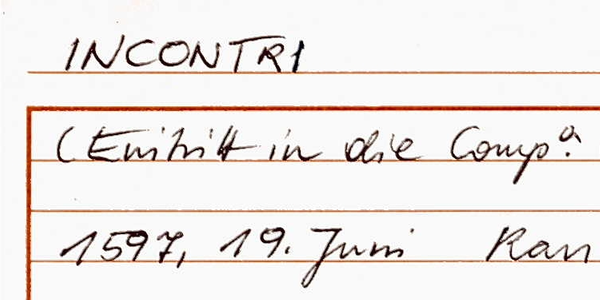 INCONTRI
(Eintritt in die Compª.
1597, 19. Juni Ran